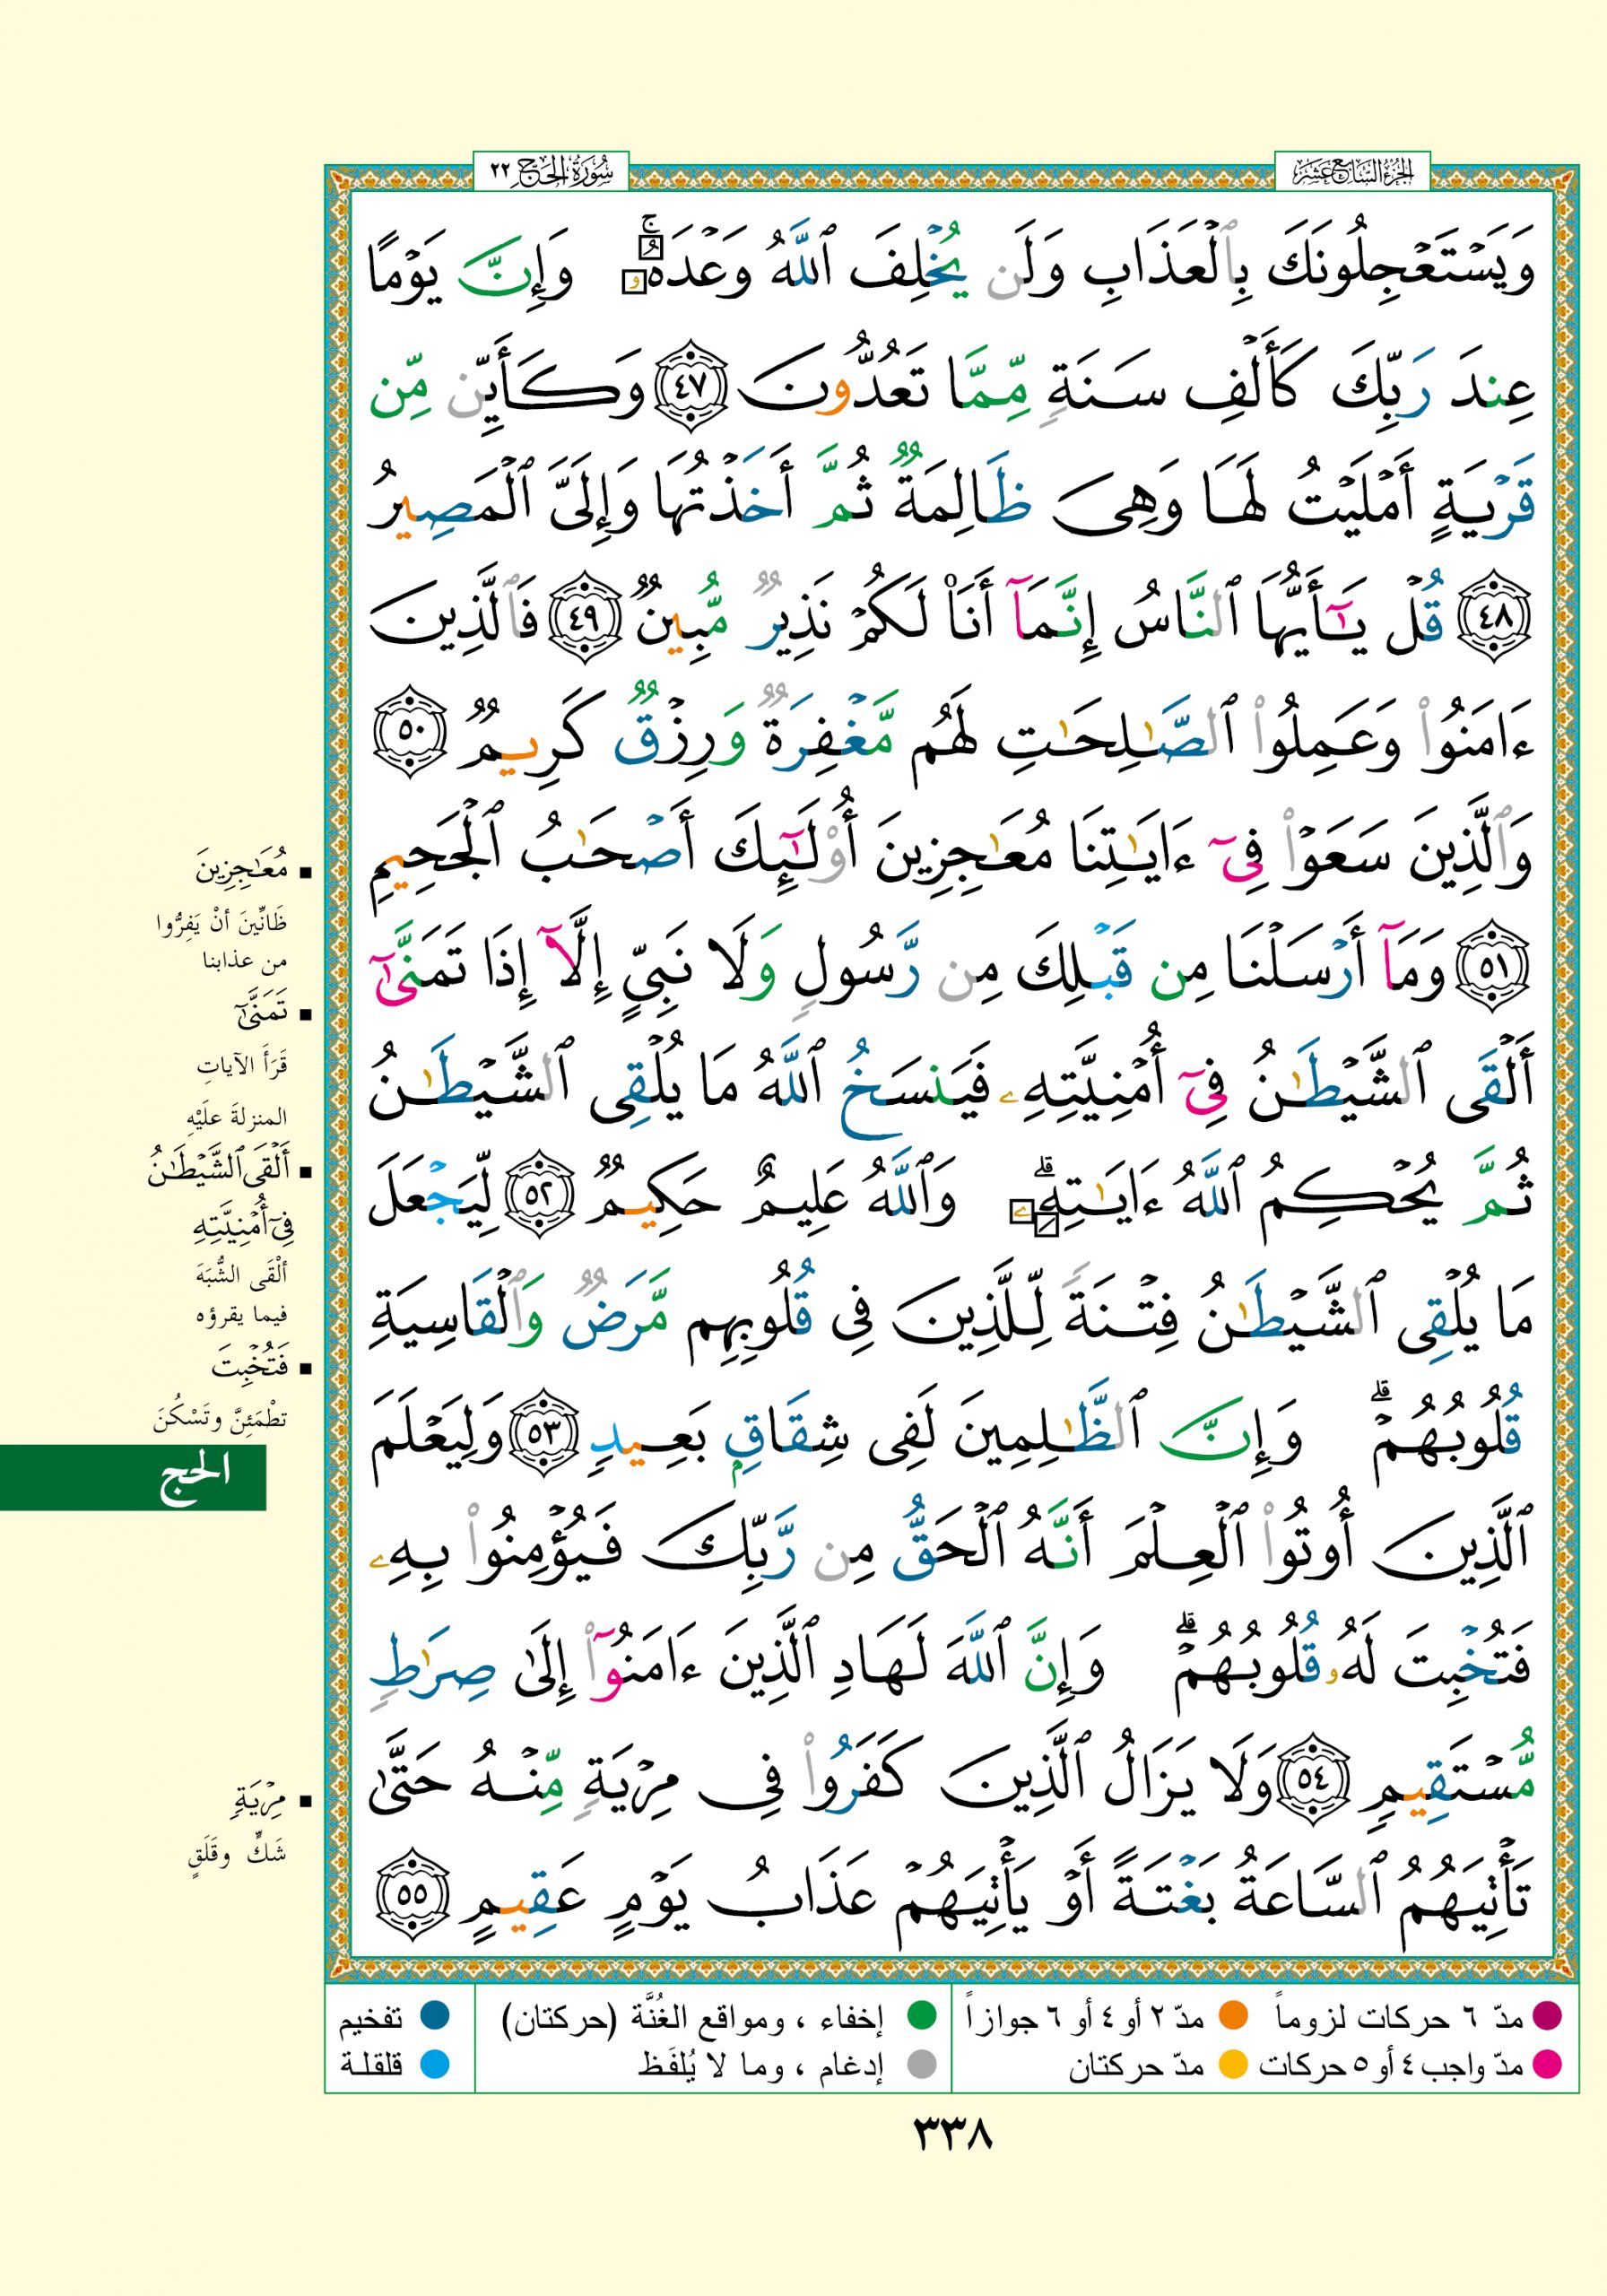 الجزء السابع عشر
سورة الحج ٢٢
وَيَسْتَعْجِلُونَكَ بِٱلْعَذَابِ وَلَن يُخْلِفَ ٱللَّهُ وَعْدَهُۥ ۚ وَإِنَّ يَوْمًا
عِندَ رَبِّكَ كَأَلْفِ سَنَةٍ مِّمَّا تَعُدُّونَ ٤٧ وَكَأَيِّن مِّن
قَرْيَةٍ أَمْلَيْتُ لَهَا وَهِىَ ظَالِمَةٌ ثُمَّ أَخَذْتُهَا وَإِلَىَّ ٱلْمَصِيرُ
٤٨ قُلْ يَـٰٓأَيُّهَا ٱلنَّاسُ إِنَّمَآ أَنَا۠ لَكُمْ نَذِيرٌ مُّبِينٌ ٤٩ فَٱلَّذِينَ
ءَامَنُوا۟ وَعَمِلُوا۟ ٱلصَّـٰلِحَـٰتِ لَهُم مَّغْفِرَةٌ وَرِزْقٌ كَرِيمٌ ٥٠
وَٱلَّذِينَ سَعَوْا۟ فِىٓ ءَايَـٰتِنَا مُعَـٰجِزِينَ أُو۟لَـٰٓئِكَ أَصْحَـٰبُ ٱلْجَحِيمِ
٥١ وَمَآ أَرْسَلْنَا مِن قَبْلِكَ مِن رَّسُولٍ وَلَا نَبِىٍّ إِلَّآ إِذَا تَمَنَّىٰٓ
أَلْقَى ٱلشَّيْطَـٰنُ فِىٓ أُمْنِيَّتِهِۦ فَيَنسَخُ ٱللَّهُ مَا يُلْقِى ٱلشَّيْطَـٰنُ
ثُمَّ يُحْكِمُ ٱللَّهُ ءَايَـٰتِهِۦ ۗ وَٱللَّهُ عَلِيمٌ حَكِيمٌ ٥٢ لِّيَجْعَلَ
مَا يُلْقِى ٱلشَّيْطَـٰنُ فِتْنَةً لِّلَّذِينَ فِى قُلُوبِهِم مَّرَضٌ وَٱلْقَاسِيَةِ
قُلُوبُهُمْ ۗ وَإِنَّ ٱلظَّـٰلِمِينَ لَفِى شِقَاقٍۭ بَعِيدٍ ٥٣ وَلِيَعْلَمَ
ٱلَّذِينَ أُوتُوا۟ ٱلْعِلْمَ أَنَّهُ ٱلْحَقُّ مِن رَّبِّكَ فَيُؤْمِنُوا۟ بِهِۦ
فَتُخْبِتَ لَهُۥ قُلُوبُهُمْ ۗ وَإِنَّ ٱللَّهَ لَهَادِ ٱلَّذِينَ ءَامَنُوٓا۟ إِلَىٰ صِرَٰطٍ
مُّسْتَقِيمٍ ٥٤ وَلَا يَزَالُ ٱلَّذِينَ كَفَرُوا۟ فِى مِرْيَةٍ مِّنْهُ حَتَّىٰ
تَأْتِيَهُمُ ٱلسَّاعَةُ بَغْتَةً أَوْ يَأْتِيَهُمْ عَذَابُ يَوْمٍ عَقِيمٍ ٥٥
مُعَـٰجِزِينَ
ظَانِّينَ أنْ يَفِرُّوا
من عذابنا
تَمَنَّىٰٓ
قَرَأَ الآياتِ
المنزلةَ علَيْهِ
أَلْقَى ٱلشَّيْطَـٰنُ
فِىٓ أُمْنِيَّتِهِ
ألْقَى الشُّبَهَ
فيما يقرؤه
فَتُخْبِتَ
تطْمَئِنَّ وتَسْكُنَ
الحج
مِرْيَةٍ
شَكٍّ وقَلَقٍ
مدّ ٦ حركات لزوماً مدّ ٢ أو ٤ أو ٦ جوازاً إخفاء ، ومواقع الغُنَّة (حركتان) تفخيم
مدّ واجب ٤ أو ٥ حركات مدّ حركتان إدغام ، وما لا يُلفَظ قلقلة
٣٣٨